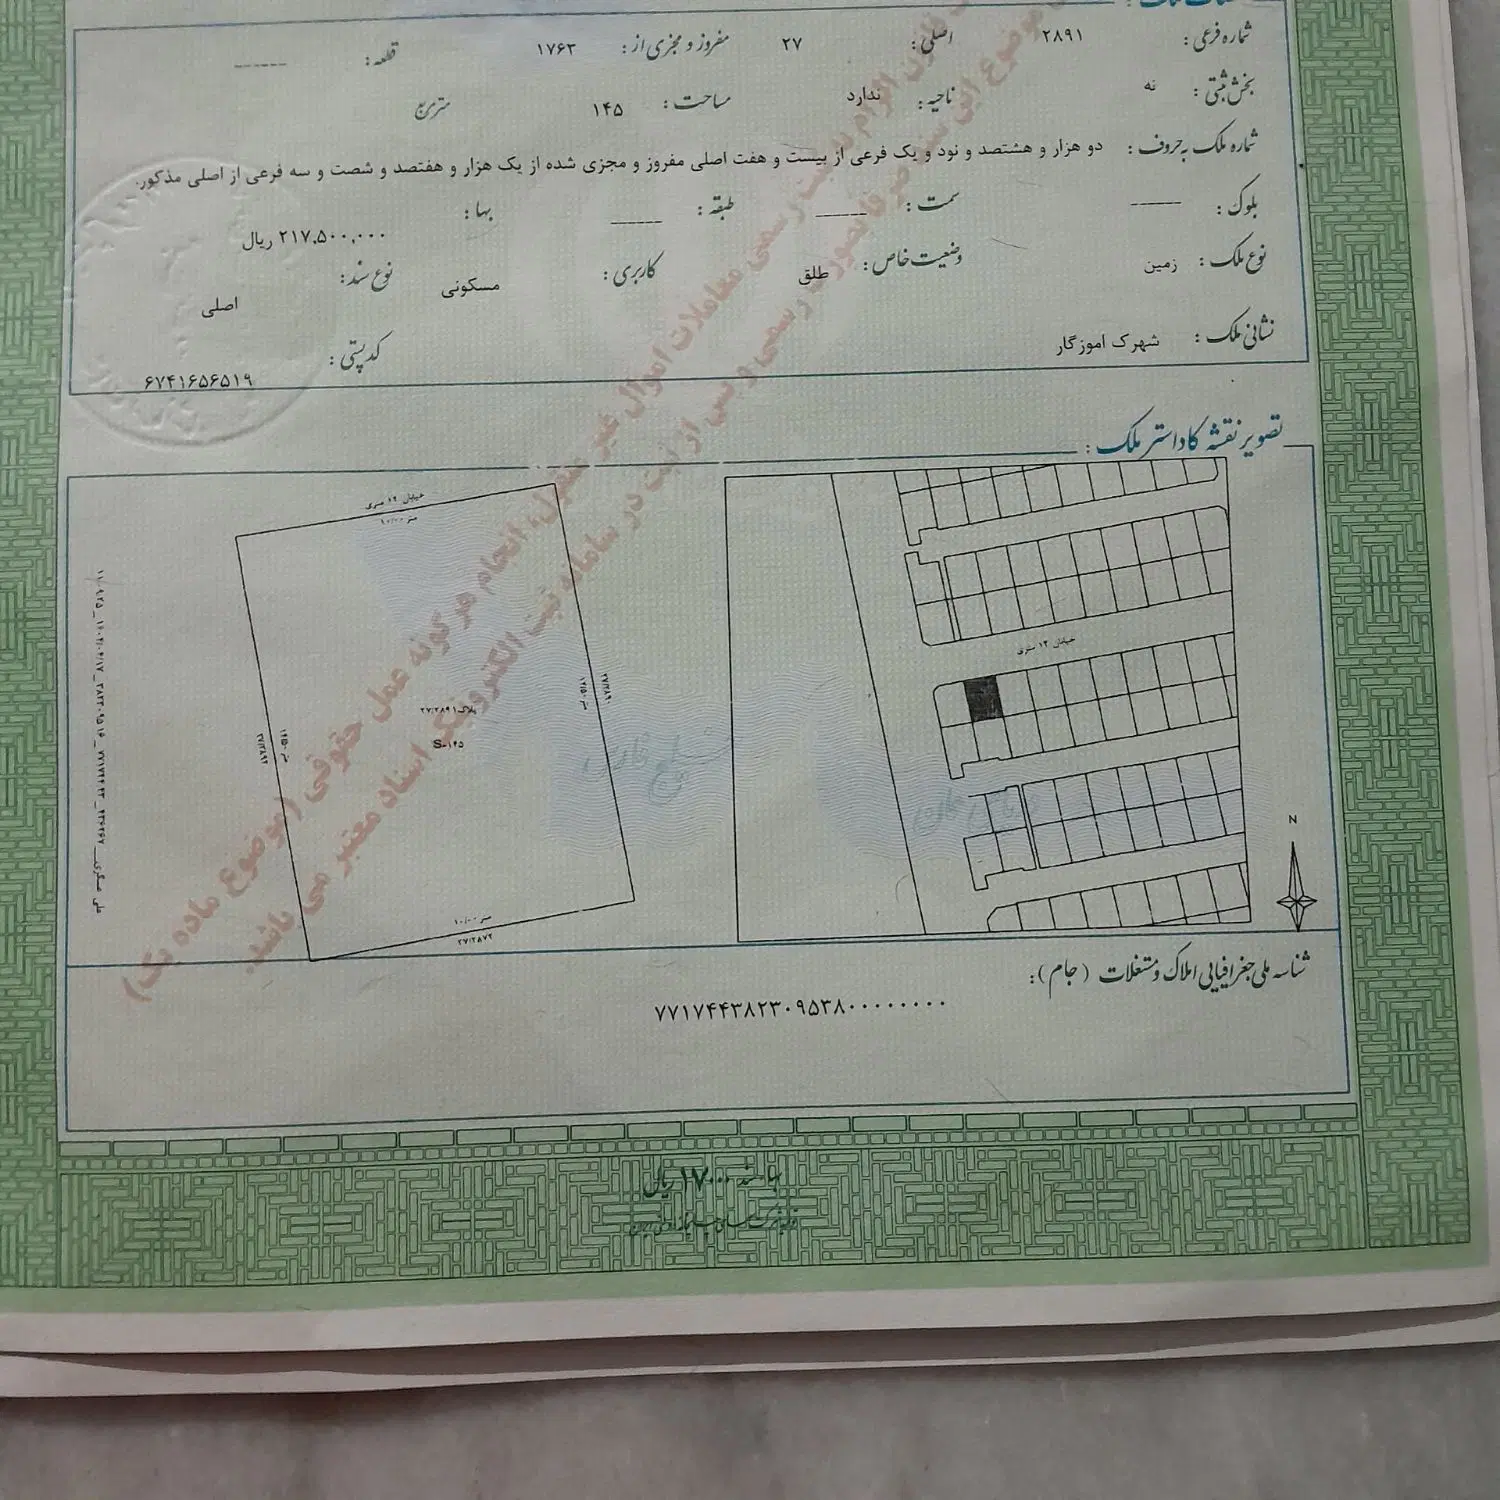 شماره فرعی : ۲۸۹۱ اصلی : ۲۷ مفروز و مجزی از : ۱۷۶۳ قطعه : ------
بخش ثبتی : نه ناحیه : ندارد مساحت : ۱۴۵ مترمربع
شماره ملک به حروف : دو هزار و هشتصد و نود و یک فرعی از بیست و هفت اصلی مفروز و مجزی شده از یک هزار و هفتصد و شصت و سه فرعی از اصلی مذکور.
بلوک : ------ سمت : ------ طبقه : ------ بها : ۲۱۷,۵۰۰,۰۰۰ ریال
نوع ملک : زمین وضعیت خاص : طلق کاربری : مسکونی نوع سند : اصلی
نشانی ملک : شهرک اموزگار کد پستی : ۶۷۴۱۶۵۶۵۱۹
تصویر نقشه کاداستر ملک :
خیابان ۱۲ متری
۱۰/۰۰ متر
پلاک ۲۷/۲۸۹۱
S=۱۴۵
۲۷/۲۸۹۰
۱۴/۵۰ متر
۲۷/۲۸۹۲
۱۴/۵۰ متر
۱۰/۰۰ متر
۲۷/۲۸۷۲
خیابان ۱۲ متری
N
شناسه ملی جغرافیایی املاک و مستغلات (جام) :
۷۷۱۷۴۴۳۸۲۳۰۹۵۳۸۰۰۰۰۰۰۰۰
بها سند ۱۷۰۰۰ ریال